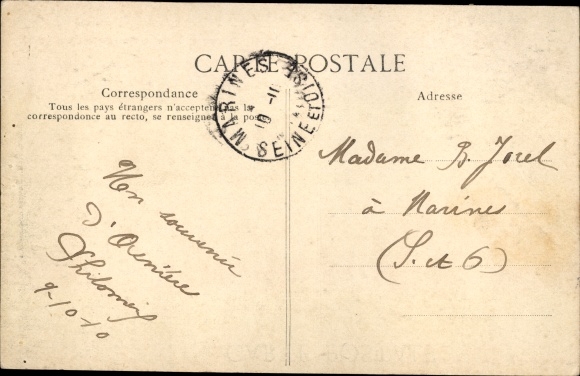 CARTE POSTALE
Correspondance
Tous les pays étrangers n'acceptent pas la
correspondance au recto, se renseigner à la poste
Adresse
MARINES
SEINE ET OISE
10 -11
Un souvenir
d'
9-10-10
Madame B. Jorel
à Marines
(S. et O)